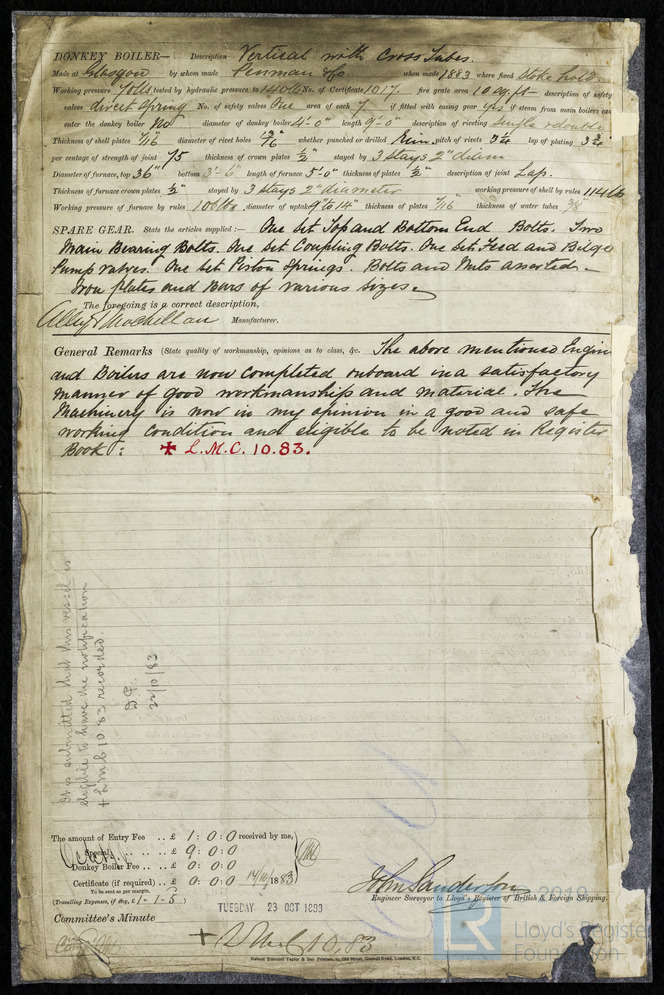 DONKEY BOILER— Description Vertical with Cross Tubes.
Made at Glasgow by whom made Penman & Co. when made 1883 where fixed Stoke hold.
Working pressure 70lbs tested by hydraulic pressure to 140lbs No. of Certificate 1017. fire grate area 10 sq. ft description of safety
valves direct Spring No. of safety valves One area of each 7 if fitted with easing gear yes if steam from main boilers can
enter the donkey boiler No diameter of donkey boiler 4'-0" length 9'-0" description of riveting single & double
Thickness of shell plates 7/16 diameter of rivet holes 13/16 whether punched or drilled pitch of rivets lap of plating
per centage of strength of joint 75 thickness of crown plates 1/2" stayed by 3 stays 2" diam
Diameter of furnace, top 36" bottom 3'-6" length of furnace 5'-0" thickness of plates 1/2" description of joint Lap.
Thickness of furnace crown plates 1/2" stayed by 3 stays 2" diameter working pressure of shell by rules 114 lb
Working pressure of furnace by rules 100 lbs. diameter of uptake 9" to 14" thickness of plates 7/16 thickness of water tubes 3/8"
SPARE GEAR. State the articles supplied:— One set Top and Bottom End Bolts. Two
Main Bearing Bolts. One set Coupling Bolts. One set Feed and Bilge
Pump valves. One set Piston Springs. Bolts and Nuts assorted.—
Iron plates and Bars of various sizes.
The foregoing is a correct description,
Manufacturer.
General Remarks (State quality of workmanship, opinions as to class, &c. The above mentioned Engin
and Boilers are now completed onboard in a satisfactory
manner of good workmanship and material. The
Machinery is now in my opinion in a good and safe
working condition and eligible to be noted in Register
Book: ✠ L.M.C. 10.83.
It is submitted that this vessel is
eligible to have the notification
+ L M C 10.83 recorded.
22/10/83
The amount of Entry Fee .. £ 1 : 0 : 0 received by me,
Special .. .. £ 9 : 0 : 0
Donkey Boiler Fee .. .. £ 0 : 0 : 0
Certificate (if required) .. £ 0 : 0 : 0 1883
To be sent as per margin.
(Travelling Expenses, if any, £ 1-1-5)
John Sanderson
Engineer Surveyor to Lloyd's Register of British & Foreign Shipping.
TUESDAY 23 OCT 1883
Committee's Minute
+ L M C 10.83
2019
LR
Lloyd's Register
Foundation